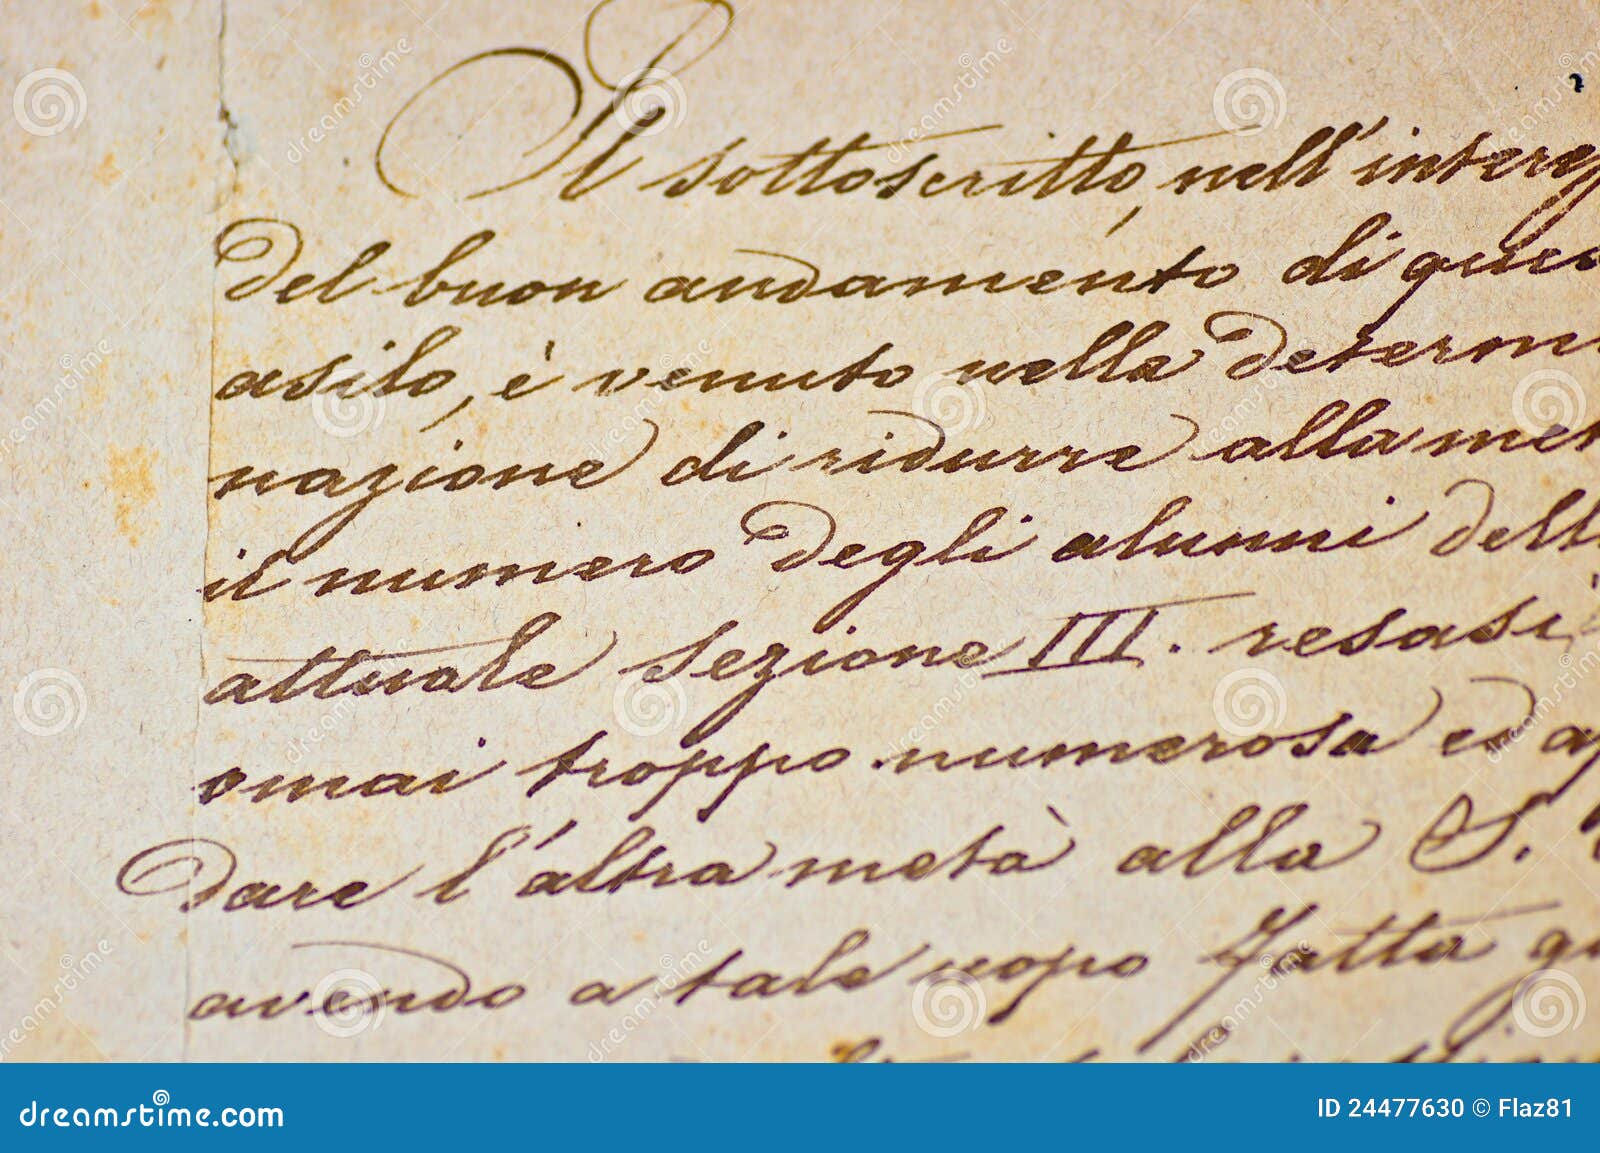 Il sottoscritto, nell'interes
del buon andamento di ques
asilo, è venuto nella determi
nazione di ridurre alla met
il numero degli alunni dell
attuale sezione III. resasi
omai troppo numerosa ed a
dare l'altra metà alla S.
avendo a tale uopo fatta
dreamstime.com
ID 24477630 © Flaz81